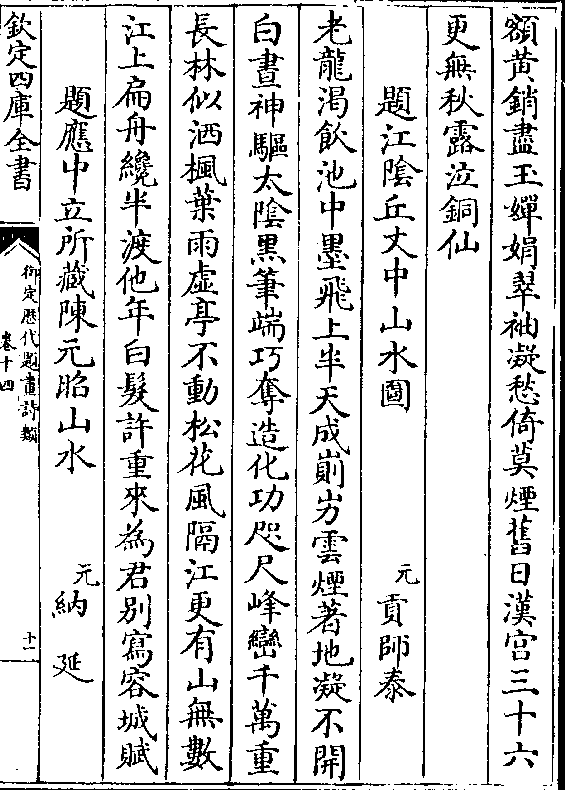 額黃銷盡玉嬋娟翠袖凝愁倚莫煙舊日漢宮三十六
更無秋露泣銅仙
題江陰丘文中山水圖 元 貢師泰
老龍渴飲池中墨飛上半天成崱屴雲煙著地凝不開
白晝神驅太陰黑筆端巧奪造化功咫尺峰巒千萬重
長林似洒楓葉雨虛亭不動松花風隔江更有山無數
江上扁舟纔半渡他年白髮許重來為君別寫容城賦
題應中立所藏陳元昭山水 元 納延
欽定四庫全書
御定歷代題畫詩類
卷十四
十一